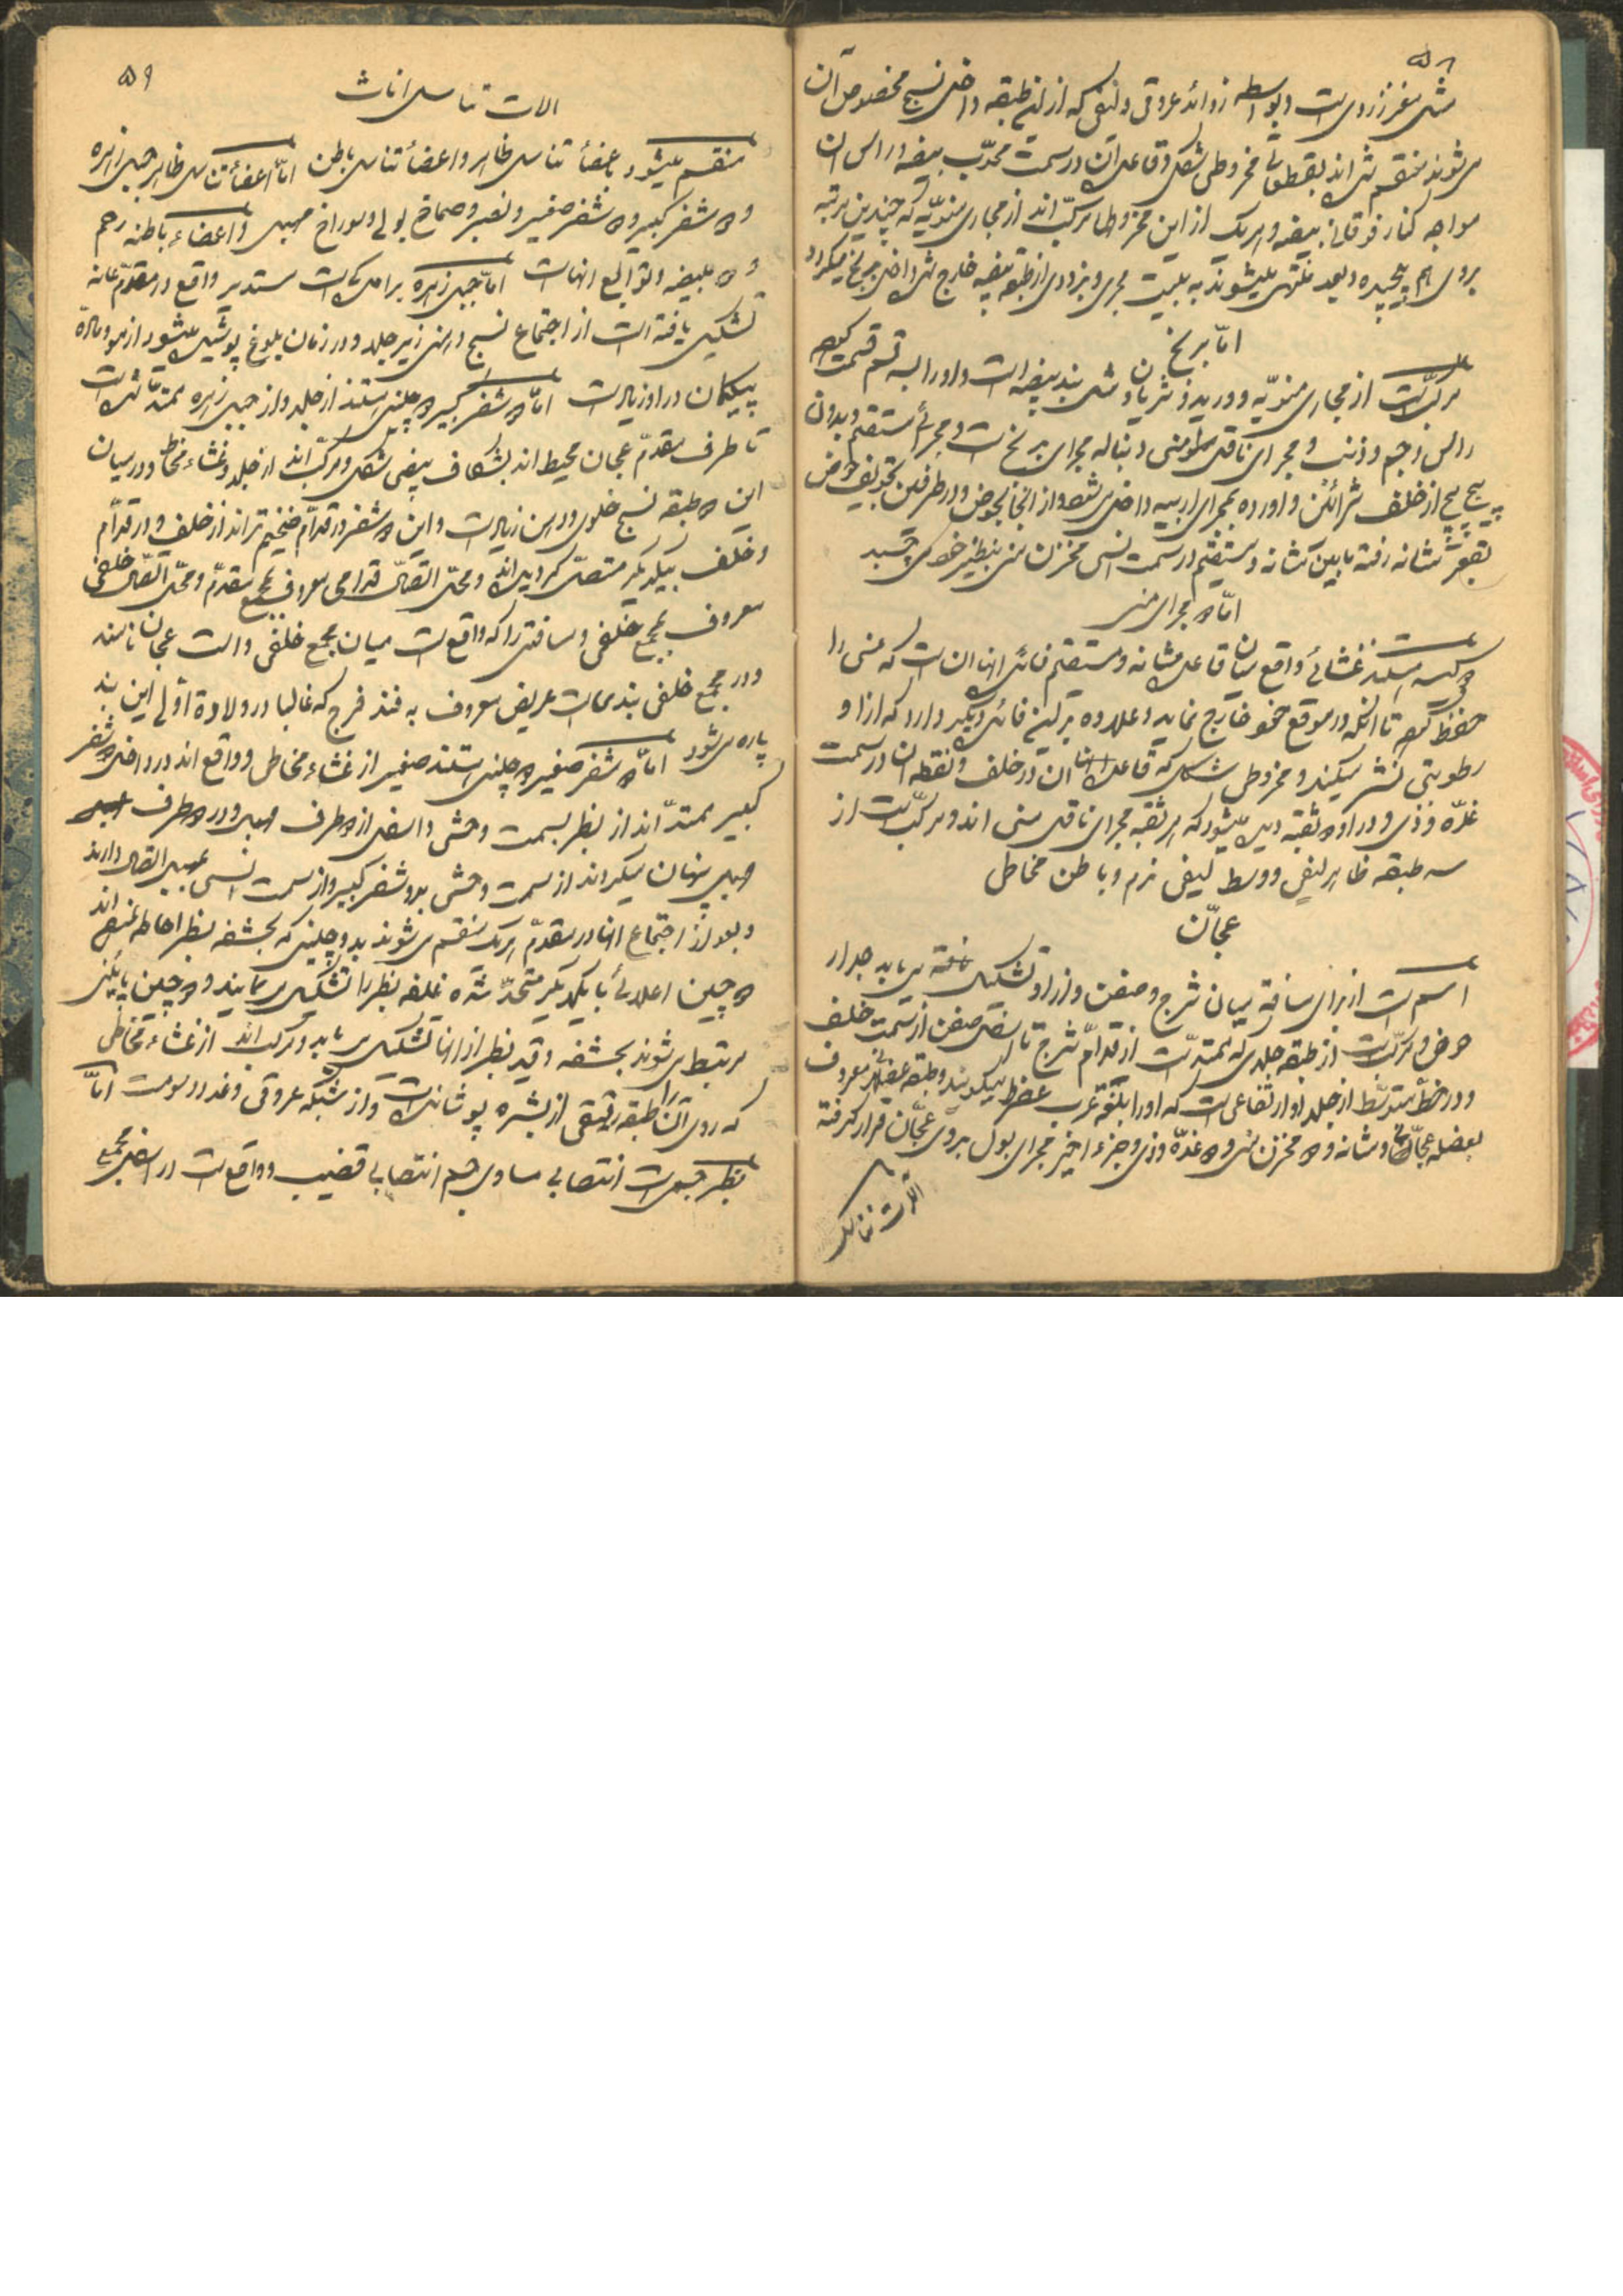 ۵۸
مثل مغز زردی است و بواسطه زوائد عروقی و لیفی که ازین طبقه داخل نسیج مخصوص آن
می‌شوند منقسم شده اند بقطعاتی مخروطی شکل و قاعده آن در سمت محدّب بیضه و راس ان
مواجه کنار فوقانی بیضه و هریک از این مخروطها مرکبّ اند از مجاری منویّه که چندین مرتبه
بروی هم پیچیده و بعد منتهی میشوند به بیست مجری و بزودی از طبقه بیضه خارج شده داخل بربخ میگردد
امّا بربخ
مرکبّ است از مجاری منویّه و ورید و شریان مثل بند بیضه است و او را به سه قسم قسمت کرده‌اند
راس و جسم و ذنب و مجرای ناقل منی دنباله مجرای بربخ است و مجرائی مستقیم و بدون
پیچ پیچ از خلف شرائین و اورده بمجرای اربیه داخل شده و از انجا بحوض و در طرفین تجویف حوض
بقعر مثانه رفته مابین مثانه و مستقیم در سمت انسی مخزن منی بنظیر خود می چسبد
امّا ۲ مجرای منی
۲ کیسه هستند غشائی واقع میان قاعده مثانه و مستقیم فائده انها ان است که منی را
حفظ کرده تا انکه در موقع خود خارج نماید و علاوه بر این فائده دیگر دارد که از او
رطوبتی نشر میکند و مخروطی شکل که قاعده انها ان در خلف و نقطه ان در سمت
غدّه وذی و در او ۲ ثقبه دیده میشود که هر ثقبه مجرای ناقل منی اند و مرکبّ است از
سه طبقه ظاهر لیفی و وسط لیفی نرم و باطن مخاطی
عجّان
اسم است از برای مسافة میان شرج و صفن و از او تشکیل یافته می یابد جدار
حوض و مرکبّ است از طبقه جلدی که ممتدّ است از قدّام شرج تا اسفل صفن از سمت خلف
و در خطّ متوسّط از جلد او ارتفاعی است که او را بلغة عرب عضرط میگویند و طبقه عضلانی معروف
بعضله عجّان و مثانه و ۲ مخزن منی و ۲ غدّه وذی و جزء اخیر مجرای بول بروی عجّان قرار گرفته
الات تناسل
۵۹
الات تناسل اناث
منقسم میشود باعضاء تناسل ظاهر و اعضاء تناسل باطن امّا اعضاء تناسل ظاهر جبل زهره
و ۲ شفر کبیر و ۲ شفر صغیر و بظر و صماخ بولی و سوراخ مهبل و اعضاء باطنه رحم
و ۲ بیضه و توابع انهاست امّا جبل زهره برامدگیست مستدیر واقع در مقدّم عانه
تشکیل یافته است از اجتماع نسیج درینی زیر جلد و در زمان بلوغ پوشیده میشود از مو و مادّه
پیگمان در او زیاد است امّا ۲ شفر کبیر ۲ چین هستند از جلد و از جبل زهره ممتدّ شده است
تا طرف مقدّم عجان محیط اند بشکاف بیضی شکل و مرکبّ اند از جلد و غشاء مخاطی و در میان
این ۲ طبقه نسیج خلوی و درین زیاد است و این ۲ شفر در قدّام ضخیم تر اند از خلف و در قدّام
و خلف بیکدیگر متصل گردیده اند و محلّ اتّصال قدامی معروف بمجمع مقدّم و محلّ اتّصال خلفی
معروف بمجمع خلفی و مسافتی را که واقع است میان مجمع خلفی و است عجان نامند
و در مجمع خلفی بندی است عریض معروف به فند فرج که غالبا در ولادة أولی این بند
پاره می شود امّا ۲ شفر صغیر ۲ چین هستند صغیر از غشاء مخاطی و واقع اند در داخل ۲ شفر
کبیر ممتدّ اند از بظر بسمت وحشی و اسفل از ۲ طرف مهبل و در ۲ طرف
مهبل پنهان میگردند از سمت وحشی بدو شفر کبیر و از سمت انسی بمهبل اتّصال دارند
و بعد از اجتماع انها در مقدّم هریک منقسم می شوند بدو چینی که بحشفه بظر احاطه نموده اند
۲ چین اعلائی با یکدیگر متحدّ شده غلفه بظر را تشکیل می نمایند و ۲ چین پایینی
مرتبط می شوند بحشفه و قید بظر از انها تشکیل می یابد و مرکب اند از غشاء مخاطی
که روی آن را طبقه رقیقی از بشره پوشانده است و از شبکه عروقی و غدد دسومت امّا
بظر جسمی است انتصابی مساوی جسم انتصابی قضیب و واقع است در اسفل مجمع